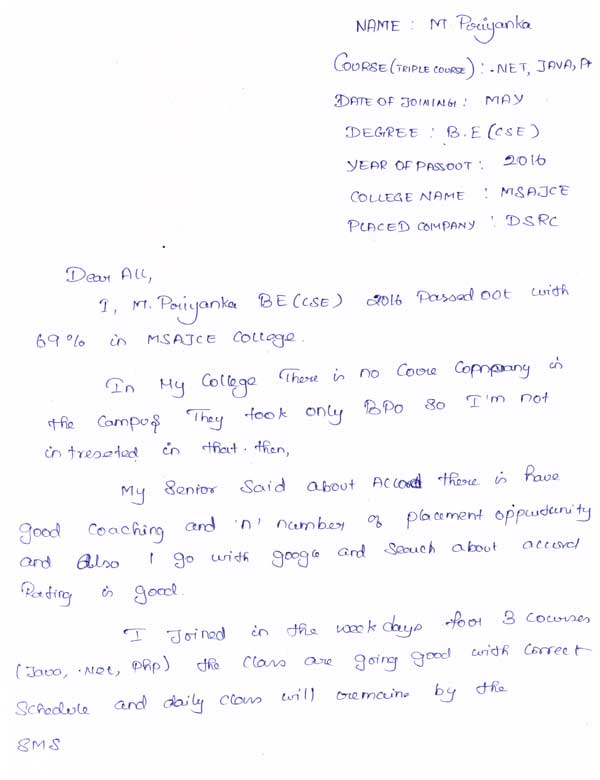 NAME : M. Priyanka
COURSE (TRIPLE COURSE) : .NET, JAVA, P
DATE OF JOINING : MAY
DEGREE : B.E (CSE)
YEAR OF PASSOUT : 2016
COLLEGE NAME : MSAJCE
PLACED COMPANY : DSRC
Dear All,
I, M. Priyanka BE (CSE) 2016 Passed out with
69% in MSAJCE College.
In My College There is no Core Company in
the Campus They took only BPO so I'm not
intrested in that. then,
My Senior Said about Accord there is have
good coaching and 'n' number of placement oppurtunity
and also I go with google and search about accord
Rating is good.
I Joined in the week days for 3 Courses
(Java, .Net, Php) the Class are going good with correct
Schedule and daily class will remaine by the
SMS